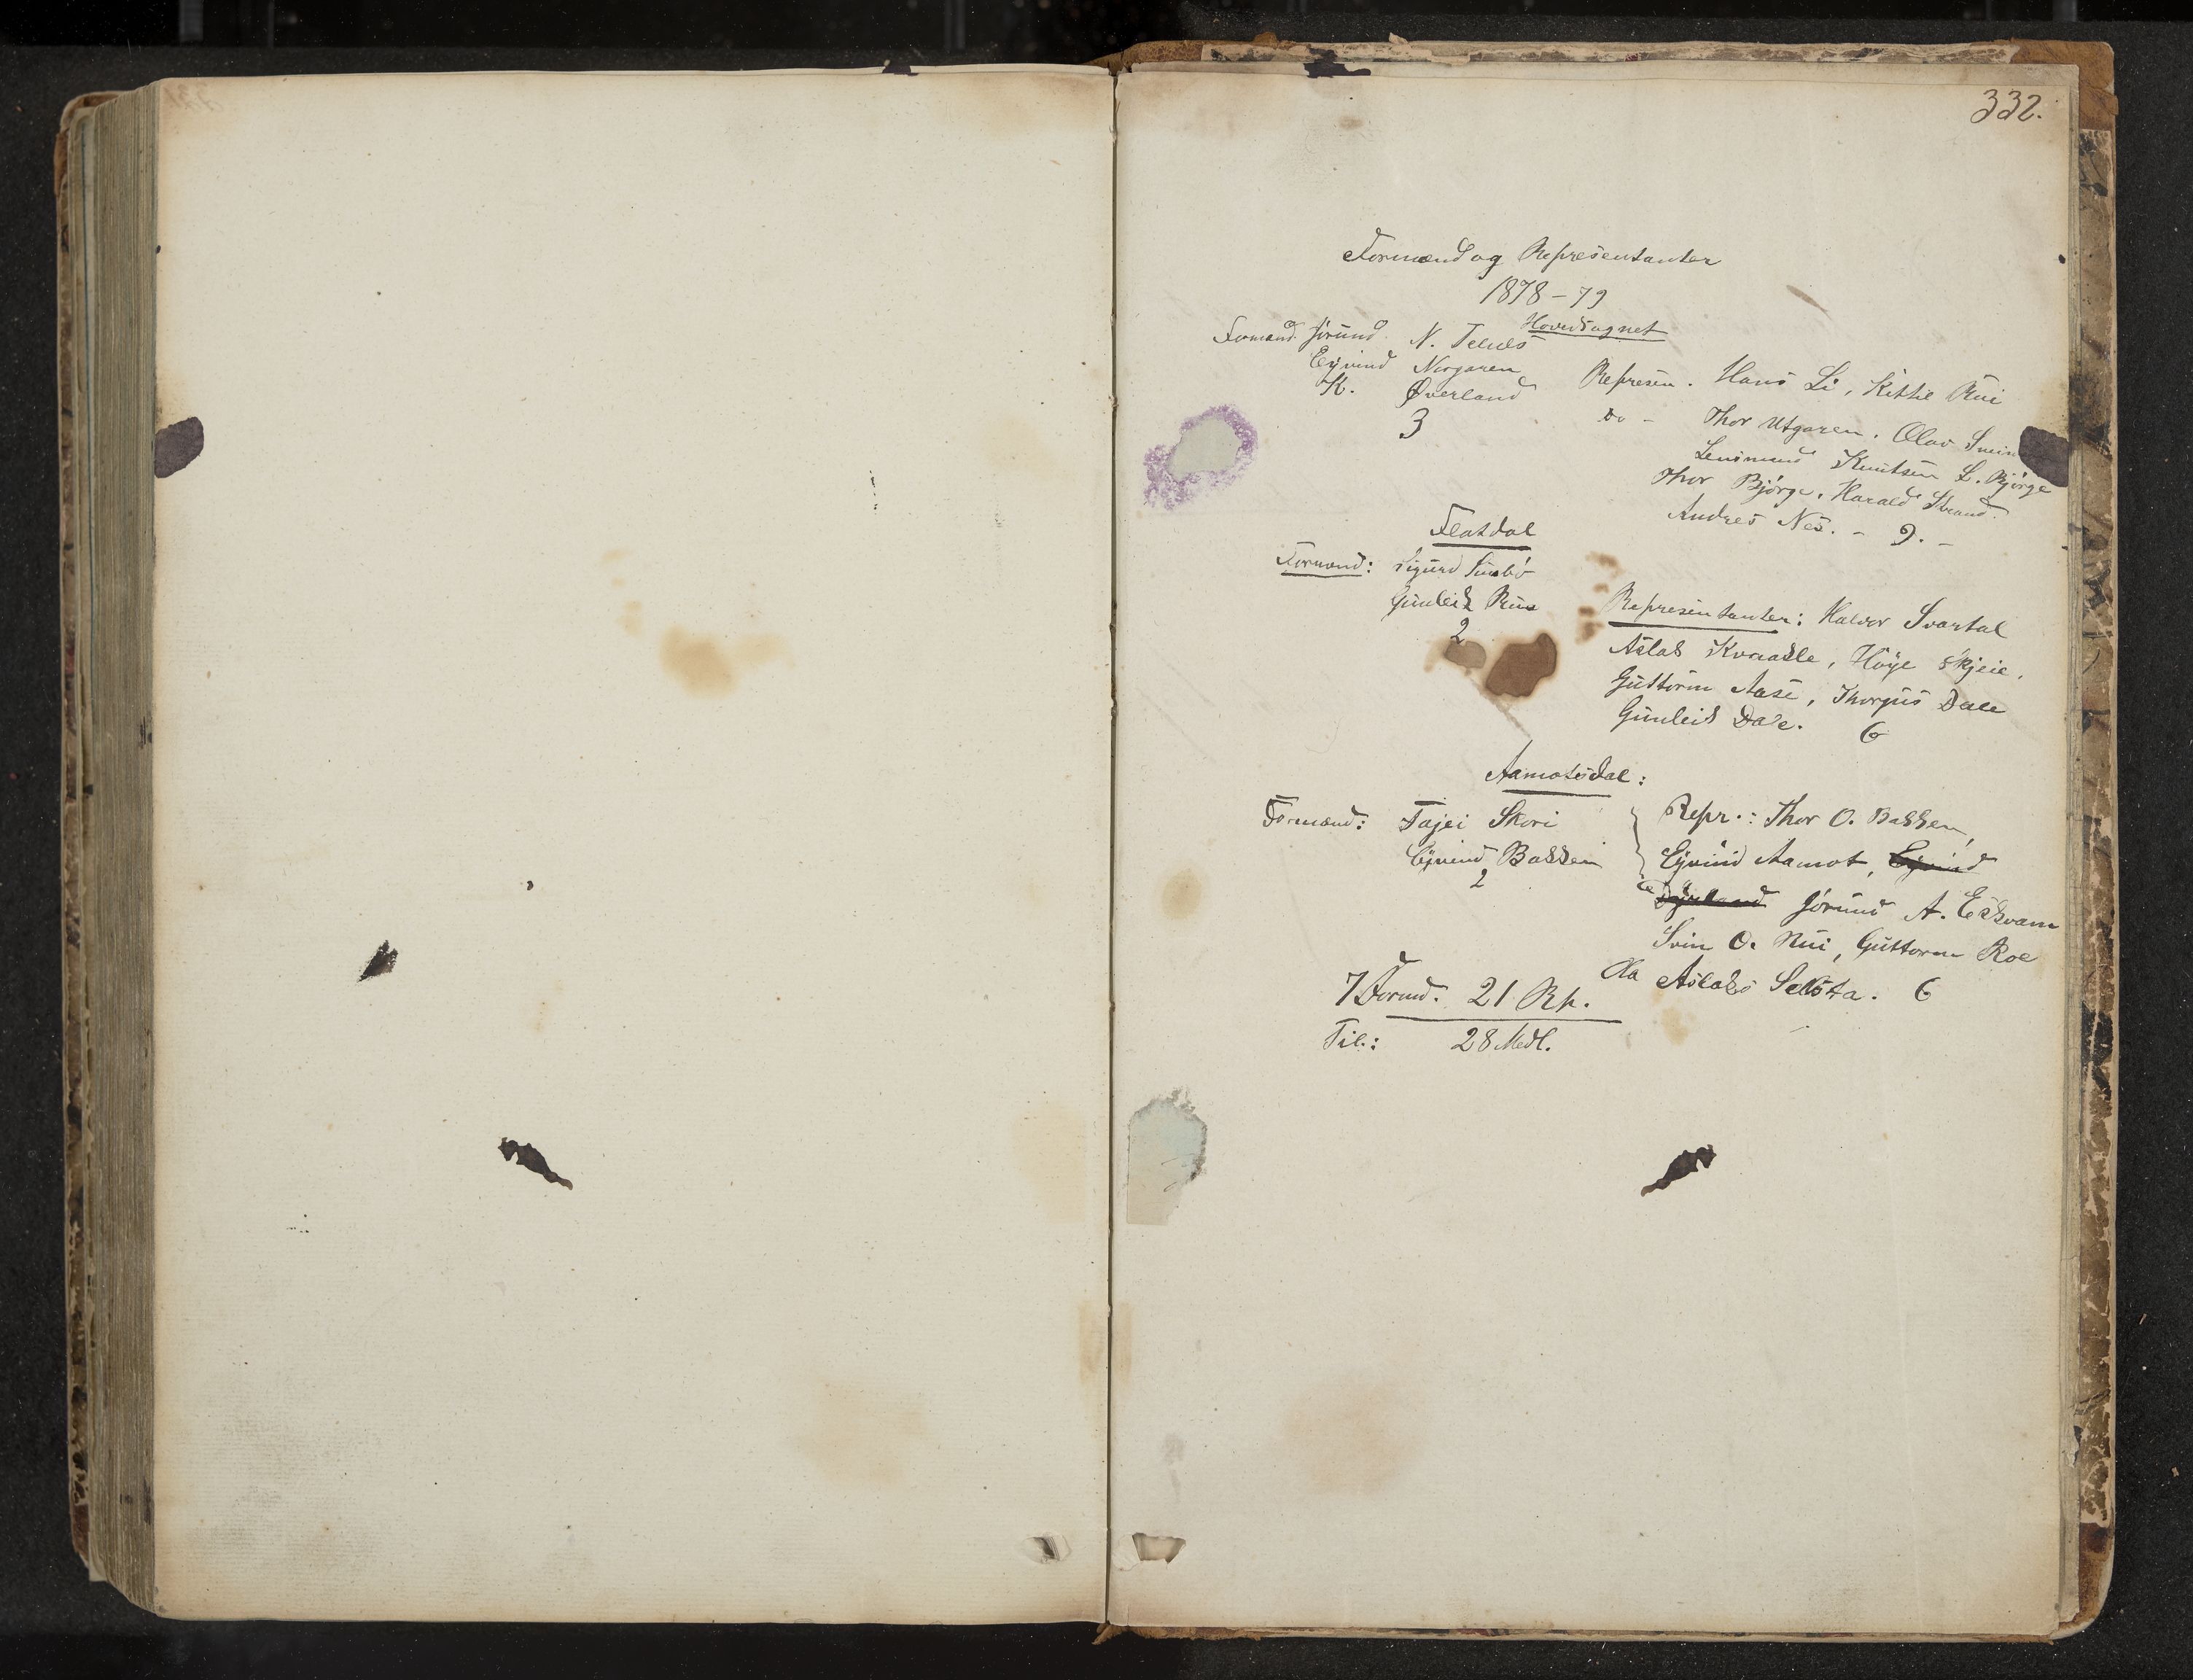 332.
Formænd og Repræsentanter
1878-79
Hovedsognet
Formænd. Jørund N. Telnes
Eyvind Norgaren
K. Øverland
3
Represen. Hans Li, Kittil Rui
do - Thor Utgaren. Olav Svein
Knutsen L. Bjørge
Thor Bjørge. Harald Strand.
Andres Nes. - 9. -
Flatdal
Formænd: Sigurd Sundbø
Gunleik Rue
2
Representanter: Halvor Svartdal
Aslak Kvaale, Høye Skjeie,
Guttorm Aase, Thorgus Dale
Gunleik Dale. 6
Aamotsdal:
Formænd: Tajei Skori
Eyvind Bakken
2
Repr.: Thor O. Bakken,
Eyvind Aamot, Eyvind
Jørund A. Ekvam
Svin O. Rui, Guttorm Roe
Ola Aslaks Selsta. 6
7 Formd. 21 Rp.
Til: 28 Medl.